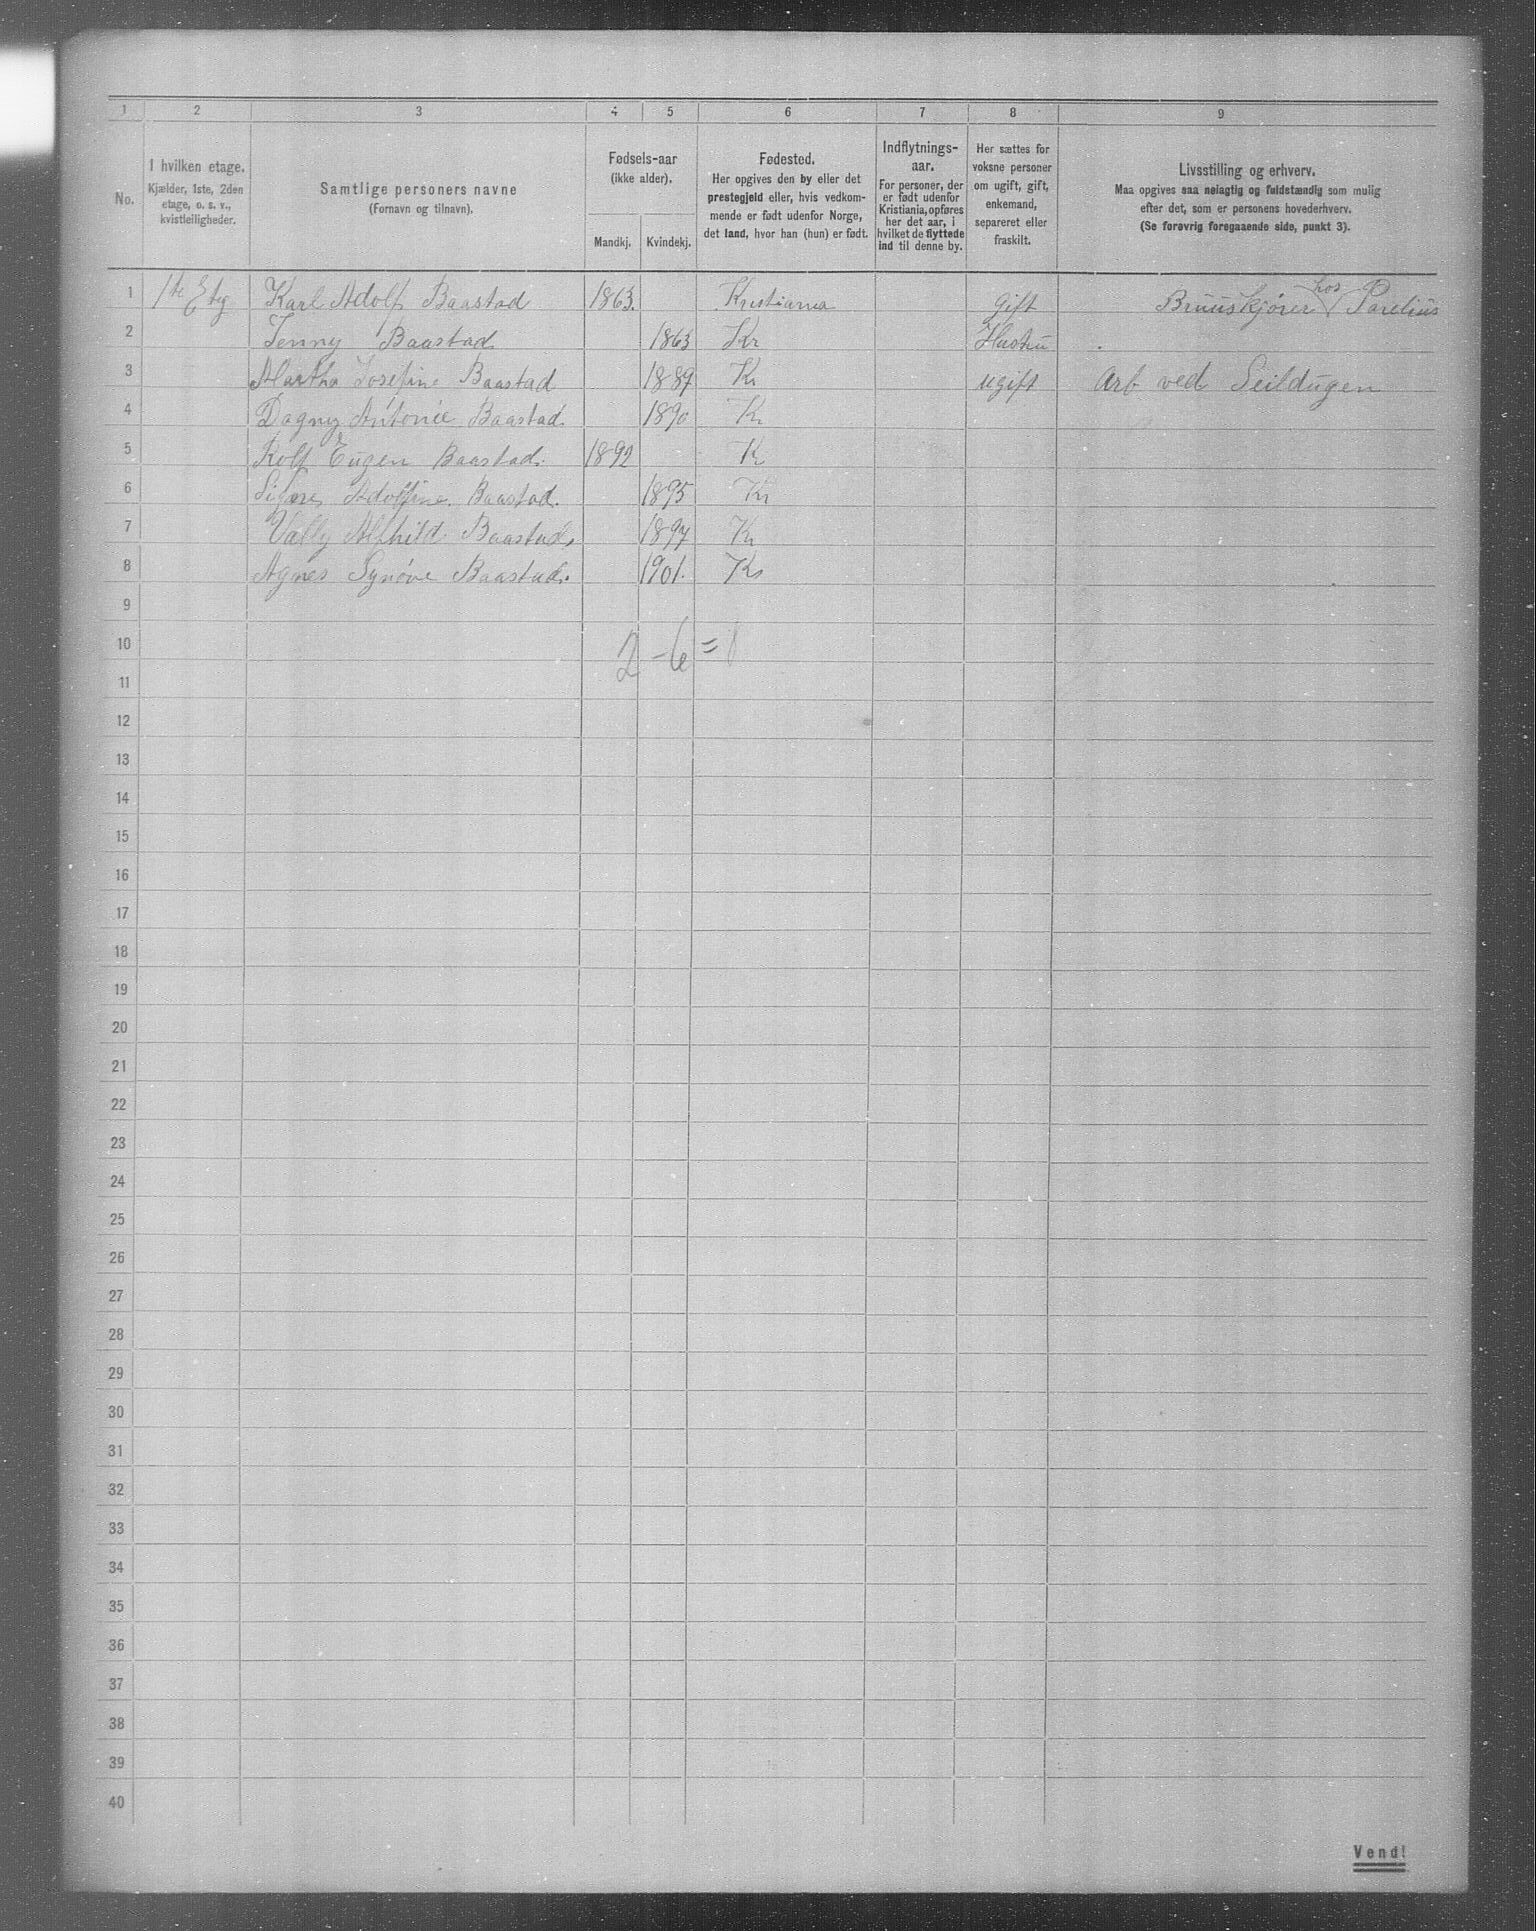 1 2 3 4 5 6 7 8 9
No.
I hvilken etage.
Kjælder, 1ste, 2den
etage, o. s. v.,
kvistleiligheder.
Samtlige personers navne
(Fornavn og tilnavn).
Fødsels-aar
(ikke alder).
Mandkj. Kvindekj.
Fødested.
Her opgives den by eller det
prestegjeld eller, hvis vedkom-
mende er født udenfor Norge,
det land, hvor han (hun) er født.
Indflytnings-
aar.
For personer, der
er født udenfor
Kristiania, opføres
her det aar, i
hvilket de flyttede
ind til denne by.
Her sættes for
voksne personer
om ugift, gift,
enkemand,
separeret eller
fraskilt.
Livsstilling og erhverv.
Maa opgives saa nøiagtig og fuldstændig som mulig
efter det, som er personens hovederhverv.
(Se forøvrig foregaaende side, punkt 3).
1 1ste Etg Karl Adolf Baastad 1863. Kristiania gift Bruuskjører hos Parelius
2 Jenny Baastad 1863 Kr Hustru
3 Martha Josefine Baastad 1889 Kr ugift Arb ved Seildugen
4 Dagny Antonie Baastad. 1890 Kr
5 Rolf Eugen Baastad. 1892 K
6 Signe Adolfine Baastad. 1895 Kr
7 Vally Alfhild Baastad. 1897 Kr
8 Agnes Synøve Baastad. 1901. Kr
9
10
2 - 6 =
11
12
13
14
15
16
17
18
19
20
21
22
23
24
25
26
27
28
29
30
31
32
33
34
35
36
37
38
39
40
Vend!